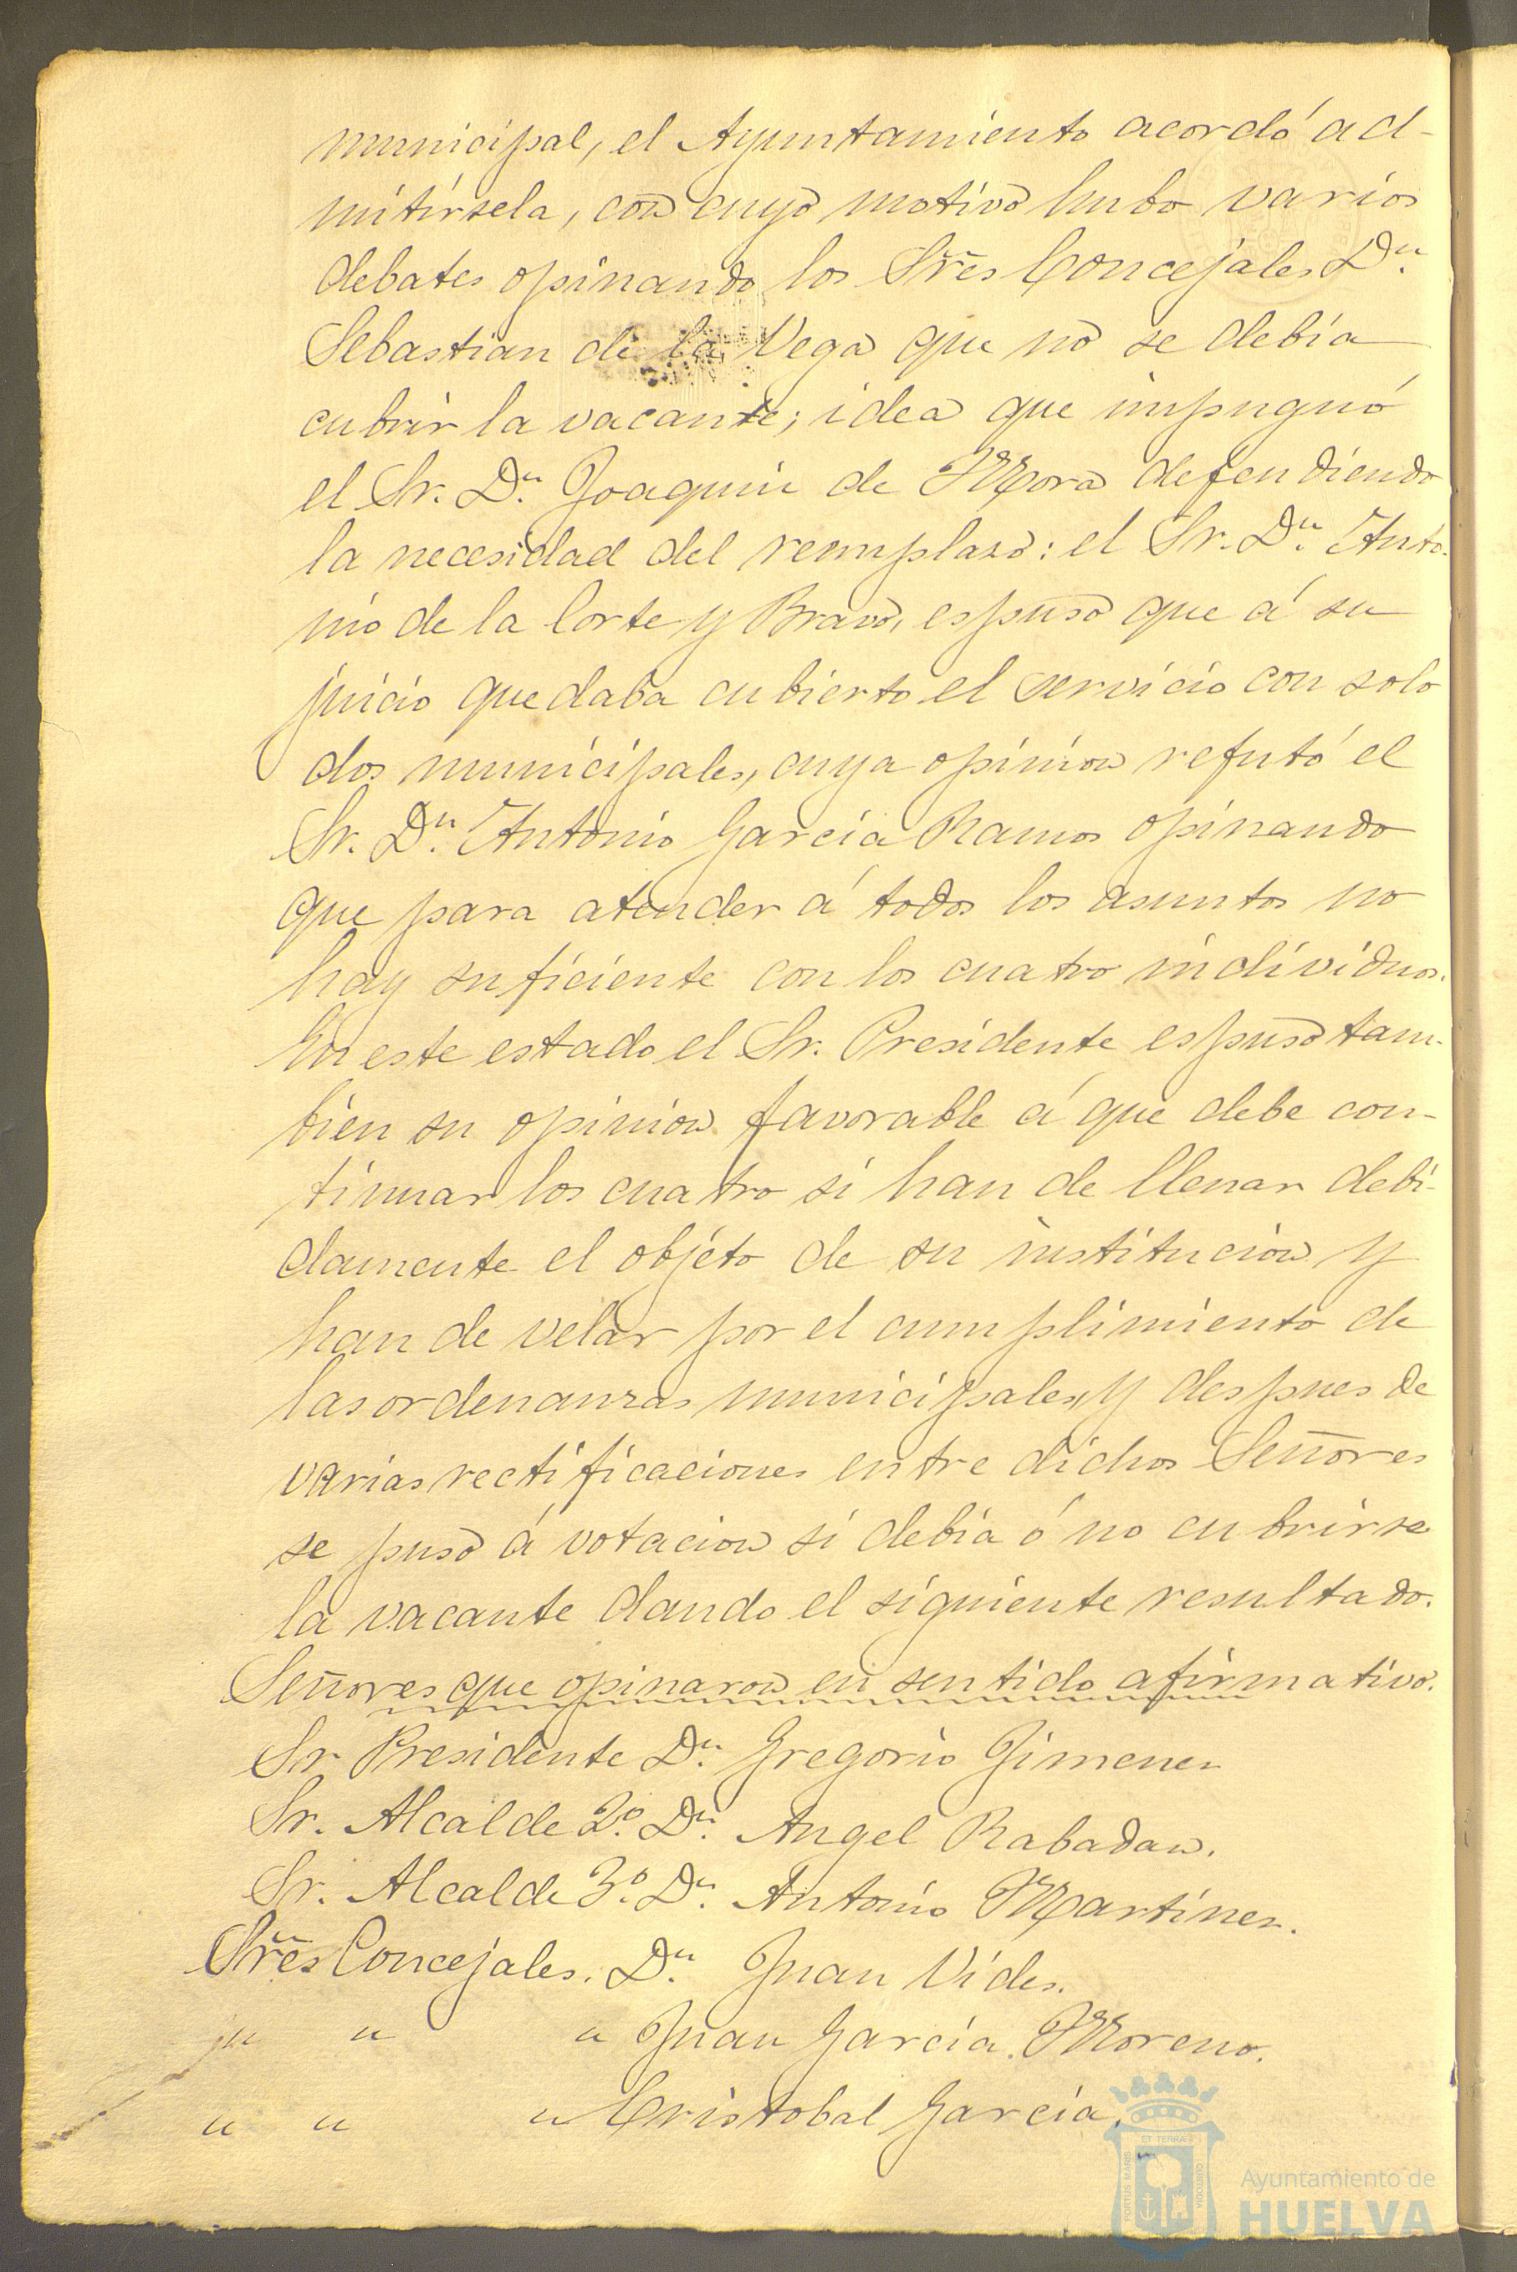 municipal, el Ayuntamiento acordó ad-
mitírsela, con cuyo motivo hubo varios
debates opinando los Sres Concejales Dn.
Sebastian de la Vega que no se debía
cubrir la vacante; idea que impugnó
el Sr. Dn. Joaquin de Mora defendiendo
la necesidad del remplazo: el Sr. Dn. Anto-
nio de la Corte y Bravo, espuso que á su
juicio quedaba cubierto el servicio con solo
dos municipales, cuya opinion refutó el
Sr. Dn. Antonio García Ramos opinando
que para atender á todos los asuntos no
hay suficiente con los cuatro individuos.
En este estado el Sr. Presidente espuso tam-
bien su opinion favorable á que debe con-
tinuar los cuatro si han de llenar debi-
damente el objéto de su institucion y
han de velar por el cumplimiento de
las ordenanzas municipales, y despues de
varias rectificaciones entre dichos Señores
se puso á votacion si debía ó no cubrirse
la vacante dando el siguiente resultado.
Señores que opinaron en sentido afirmativo.
Sr Presidente Dn. Gregorio Jimenez
Sr. Alcalde 2º. Dn. Angel Rabadan.
Sr. Alcalde 3º. Dn. Antonio Martínez.
Sres Concejales. Dn. Juan Vides.
" " " Juan García Moreno.
" " " Cristobal García.
PORTUS MARIS ET TERRAE CUSTODIA
Ayuntamiento de
HUELVA